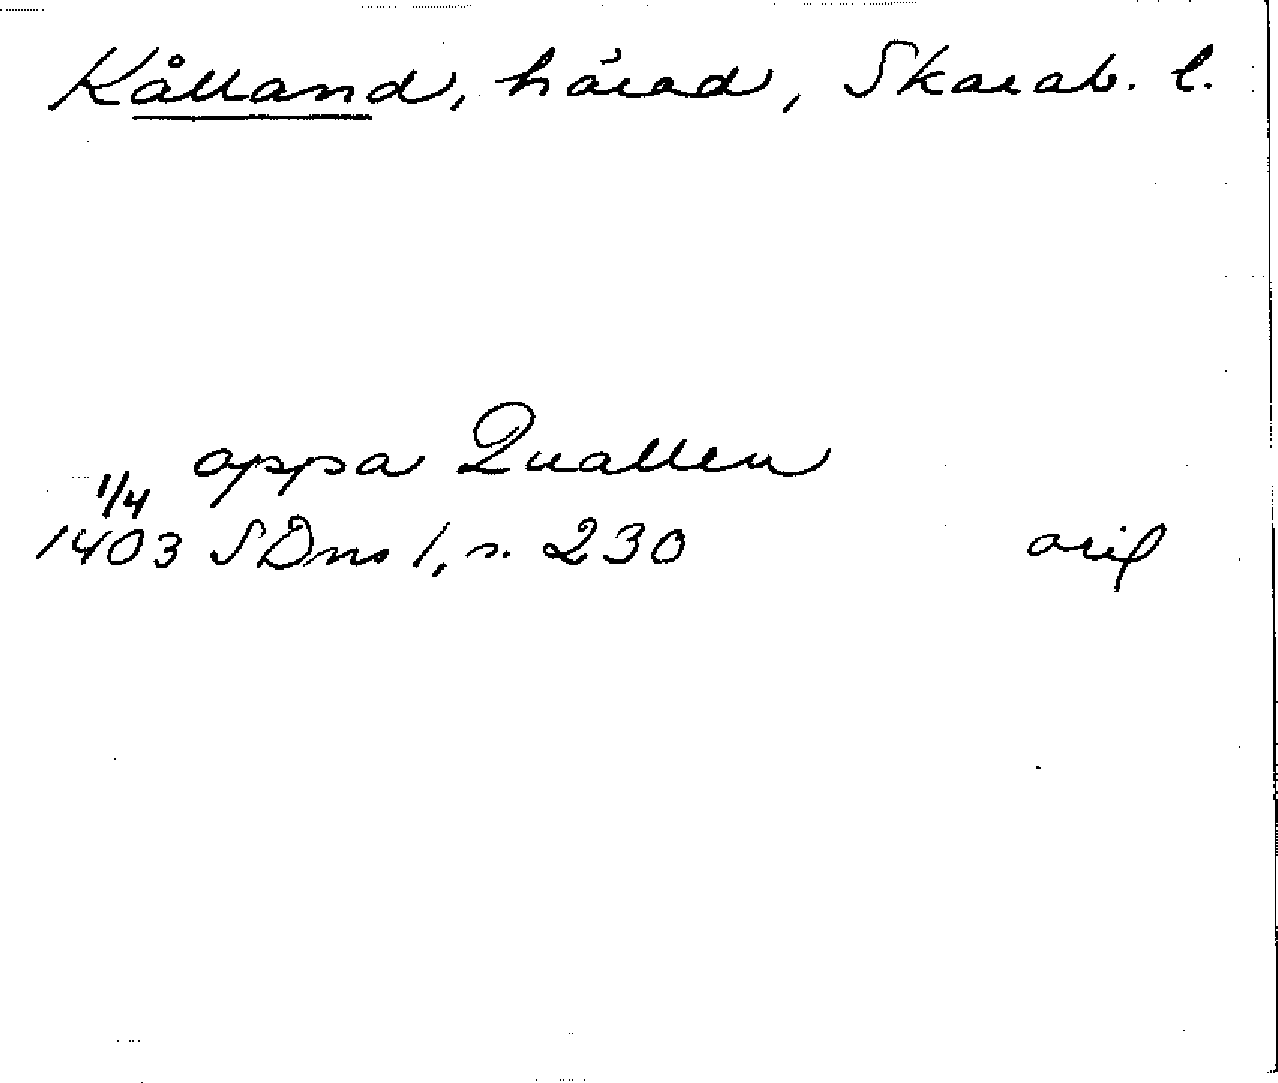 Kålland, härad, Skarab. l.
oppa Quallen
1/4
1403 SDns 1, s. 230 orig